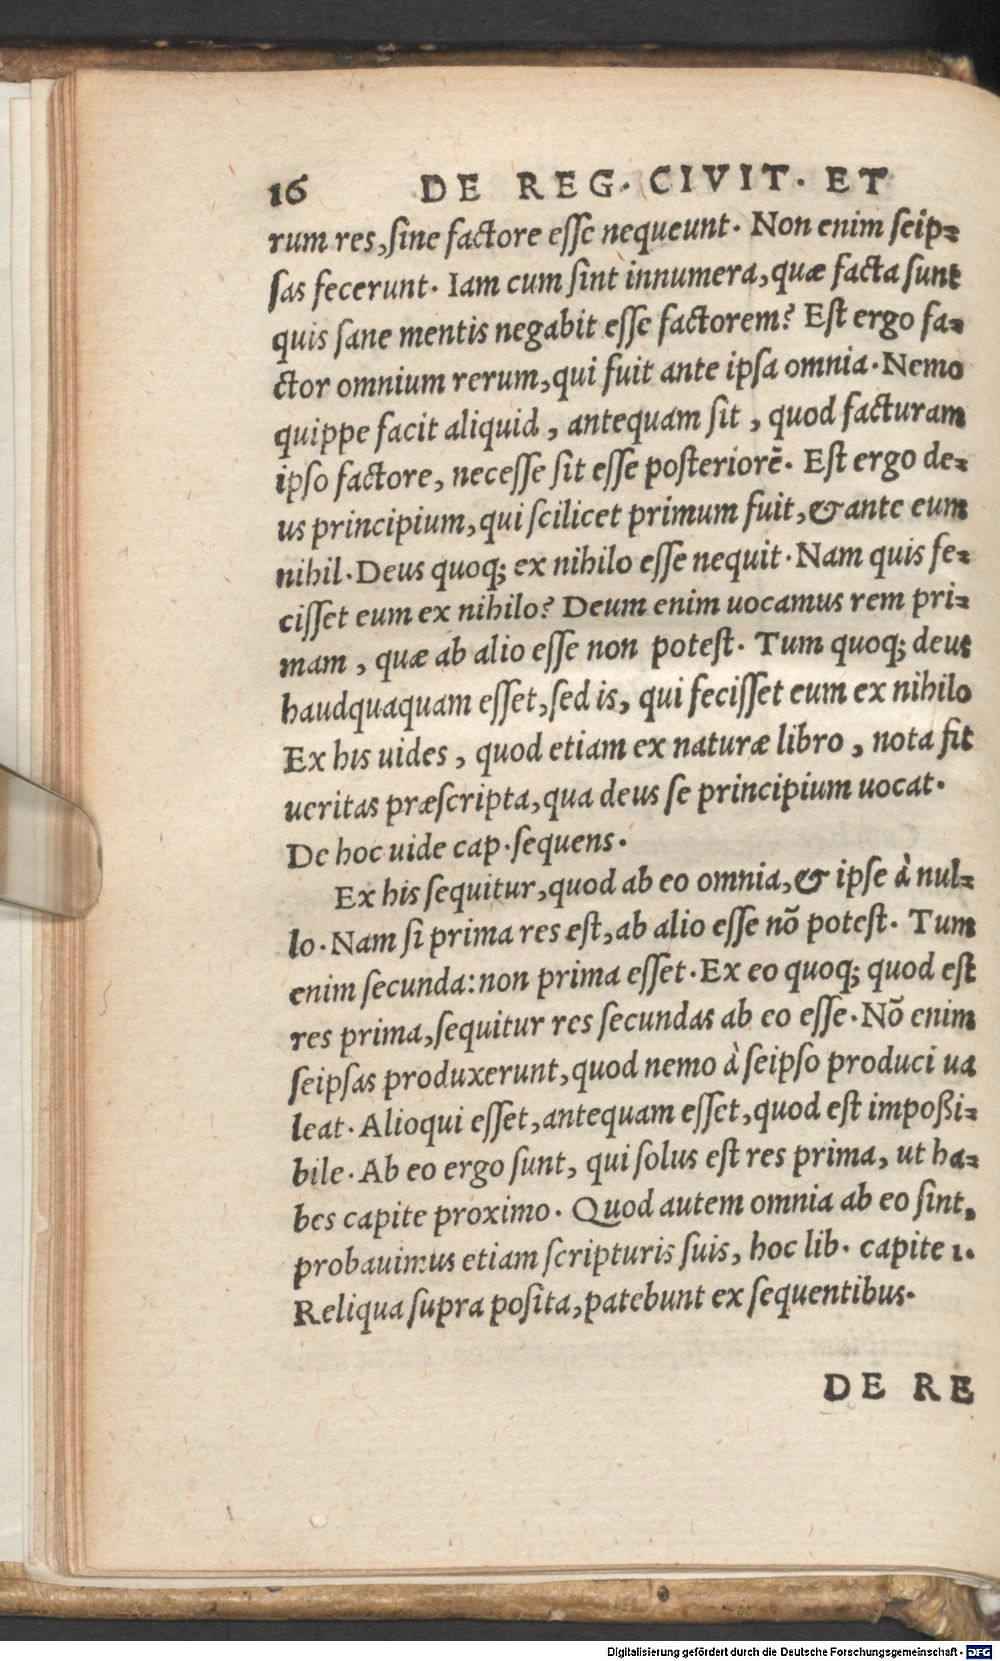 16 DE REG. CIVIT. ET
rum res, sine factore esse nequeunt. Non enim seip=
sas fecerunt. Iam cum sint innumera, quæ facta sunt
quis sane mentis negabit esse factorem? Est ergo fa=
ctor omnium rerum, qui fuit ante ipsa omnia. Nemo
quippe facit aliquid, antequam sit, quod facturam
ipso factore, necesse sit esse posteriorē. Est ergo de=
us principium, qui scilicet primum fuit, & ante eum
nihil. Deus quoq; ex nihilo esse nequit. Nam quis fe=
cisset eum ex nihilo? Deum enim uocamus rem pri=
mam, quæ ab alio esse non potest. Tum quoq; deus
haudquaquam esset, sed is, qui fecisset eum ex nihilo
Ex his uides, quod etiam ex naturæ libro, nota sit
ueritas præscripta, qua deus se principium uocat.
De hoc uide cap. sequens.
Ex his sequitur, quod ab eo omnia, & ipse à nul=
lo. Nam si prima res est, ab alio esse nō potest. Tum
enim secunda: non prima esset. Ex eo quoq; quod est
res prima, sequitur res secundas ab eo esse. Nō enim
seipsas produxerunt, quod nemo à seipso produci ua
leat. Alioqui esset, antequam esset, quod est impoßi=
bile. Ab eo ergo sunt, qui solus est res prima, ut ha=
bes capite proximo. Quod autem omnia ab eo sint,
probauimus etiam scripturis suis, hoc lib. capite 1.
Reliqua supra posita, patebunt ex sequentibus.
DE RE
Digitalisierung gefördert durch die Deutsche Forschungsgemeinschaft - DFG